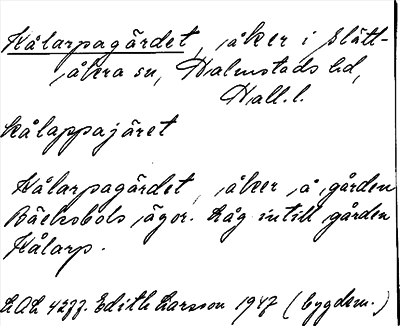 Kålarpagärdet, åker i Slätt-
åkra sn, Halmstads hd,
Hall. l.
kålappajäret
Kålarpagärdet, åker å gården
Bäcksbols ägor. Låg intill gården
Kålarp.
LAL 4277. Edith Larsson 1947 (bygdem.)